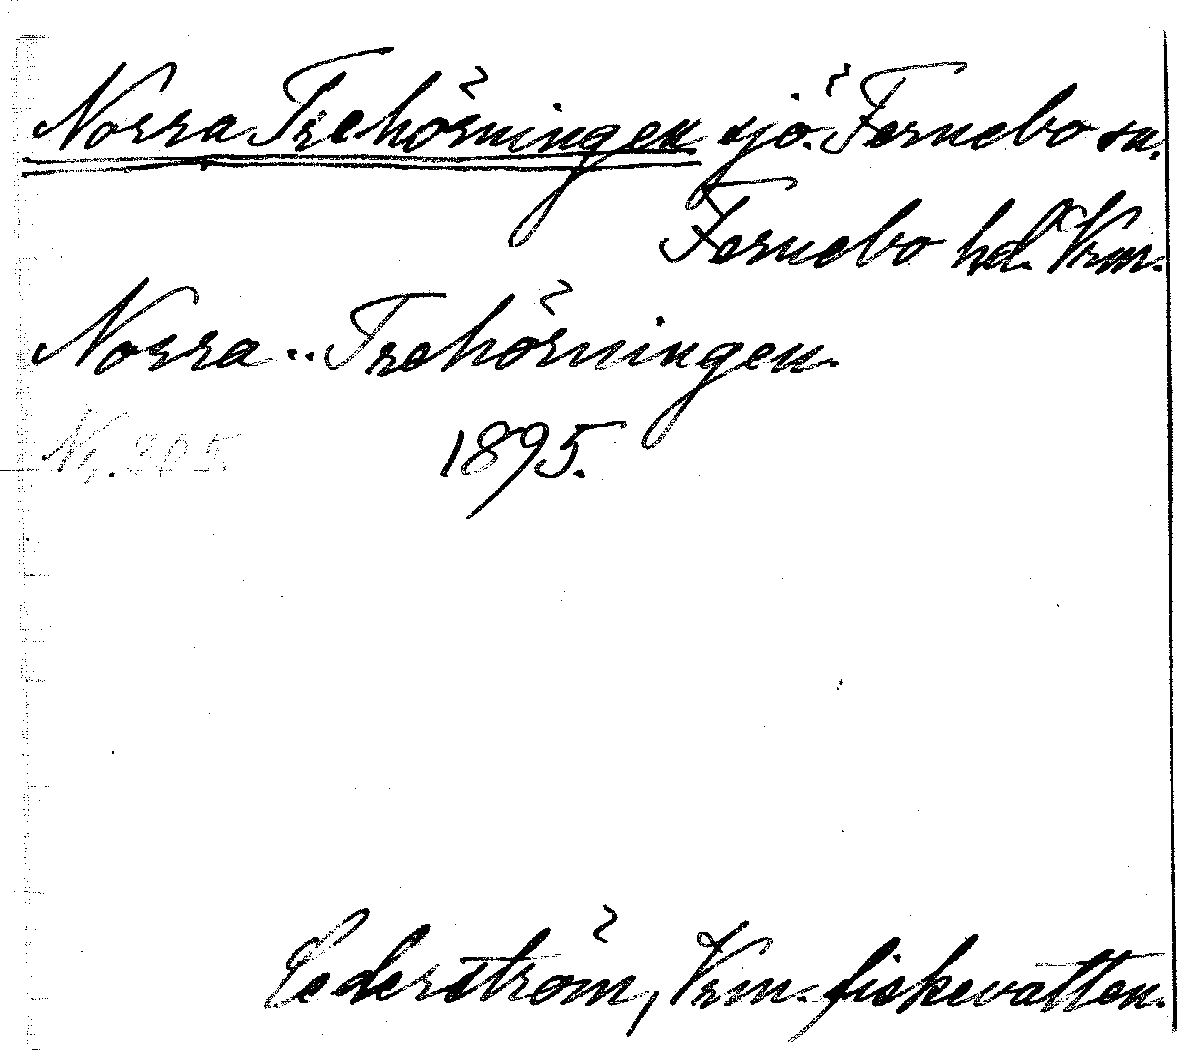 Norra Trehörningen sjö. Fernebo sn.
Fernebo hd. Vrm.
Norra.. Trehörningen.
Nr. 305 1895.
Cederström, Vrm. fiskevatten.